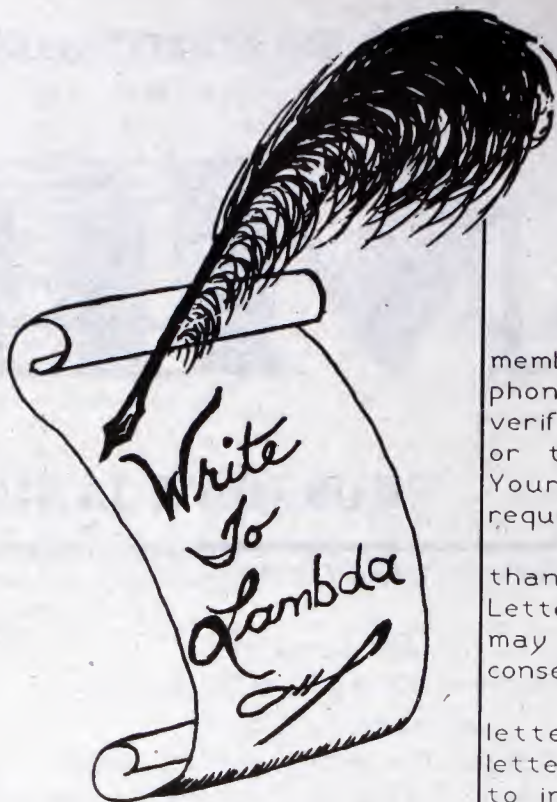 Write
To
Lambda
memb
phon
verif
or t
Your
requ
than
Lette
may
conse
lette
lette
to in